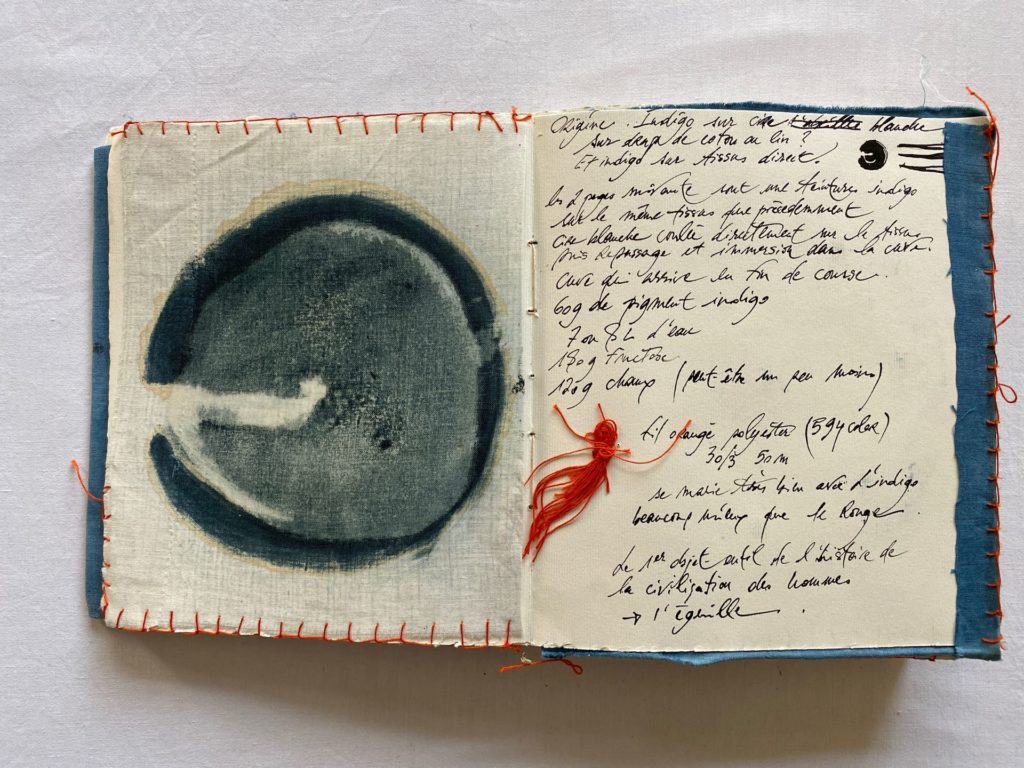 Origine. Indigo sur cire blanche
sur drap de coton ou lin ?
Et indigo sur tissus direct.
les 2 pages suivante sont une teintures indigo
sur le même tissus que précedemment
cire blanche coulée directement sur le tissus
puis repassage et immersion dans la cuve.
Cuve qui arrive en fin de course.
60g de pigment indigo
7 ou 8 L d'eau
180g Fructose
120g chaux (peut être un peu moins)
fil orange polyester (594 color)
30/3 50m
se marie très bien avec l'indigo
beaucoup mieux que le Rouge.
Le 1er objet outil de l'histoire de
la civilization des hommes
→ l'égouille.